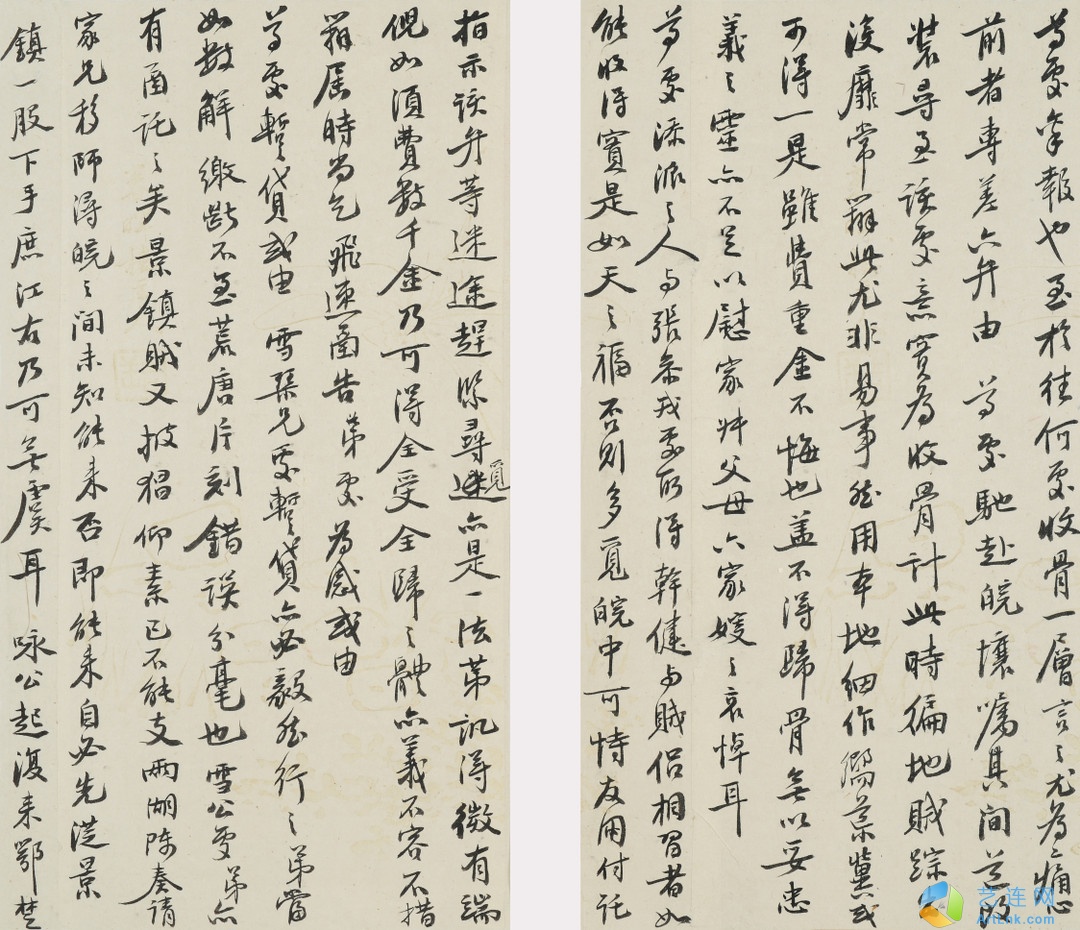 尊處稟報也至於往何處收骨一層言之尤為痛心
前者專差六弁由 尊處馳赴皖壤囑其間道改
裝尋至該處意實為收骨計此時徧地賊踪
沒靡常辦此尤非易事然用本地細作歸葬冀或
可得一是雖費重金不悔也蓋不得歸骨無以妥忠
義之靈亦不足以慰家叔父母六家嫂之哀悼耳
尊處添派之人與張參戎處所得幹健與賊侶相習者如
能收得實是如天之福否則多覓皖中可恃友開付託
指示該弁等迷途趕緊尋覓亦是一法弟訊得微有端
倪如須費數千金乃可得全受全歸之體亦義不容不措
辦屆時尚乞飛速函告弟處為感或由
尊處暫貸或由 雪琴兄處暫貸亦必毅然行之弟當
如數解繳斷不至荒唐片刻錯誤分毫也雪公處弟亦
有函託之矣景鎮賊又披猖仰素已不能支兩湖陳奏請
家兄移師潯皖之間未知能來否即能來自必先從景
鎮一股下手庶江右乃可無虞耳 咏公起復來鄂楚
艺连网
ArtLnk.com